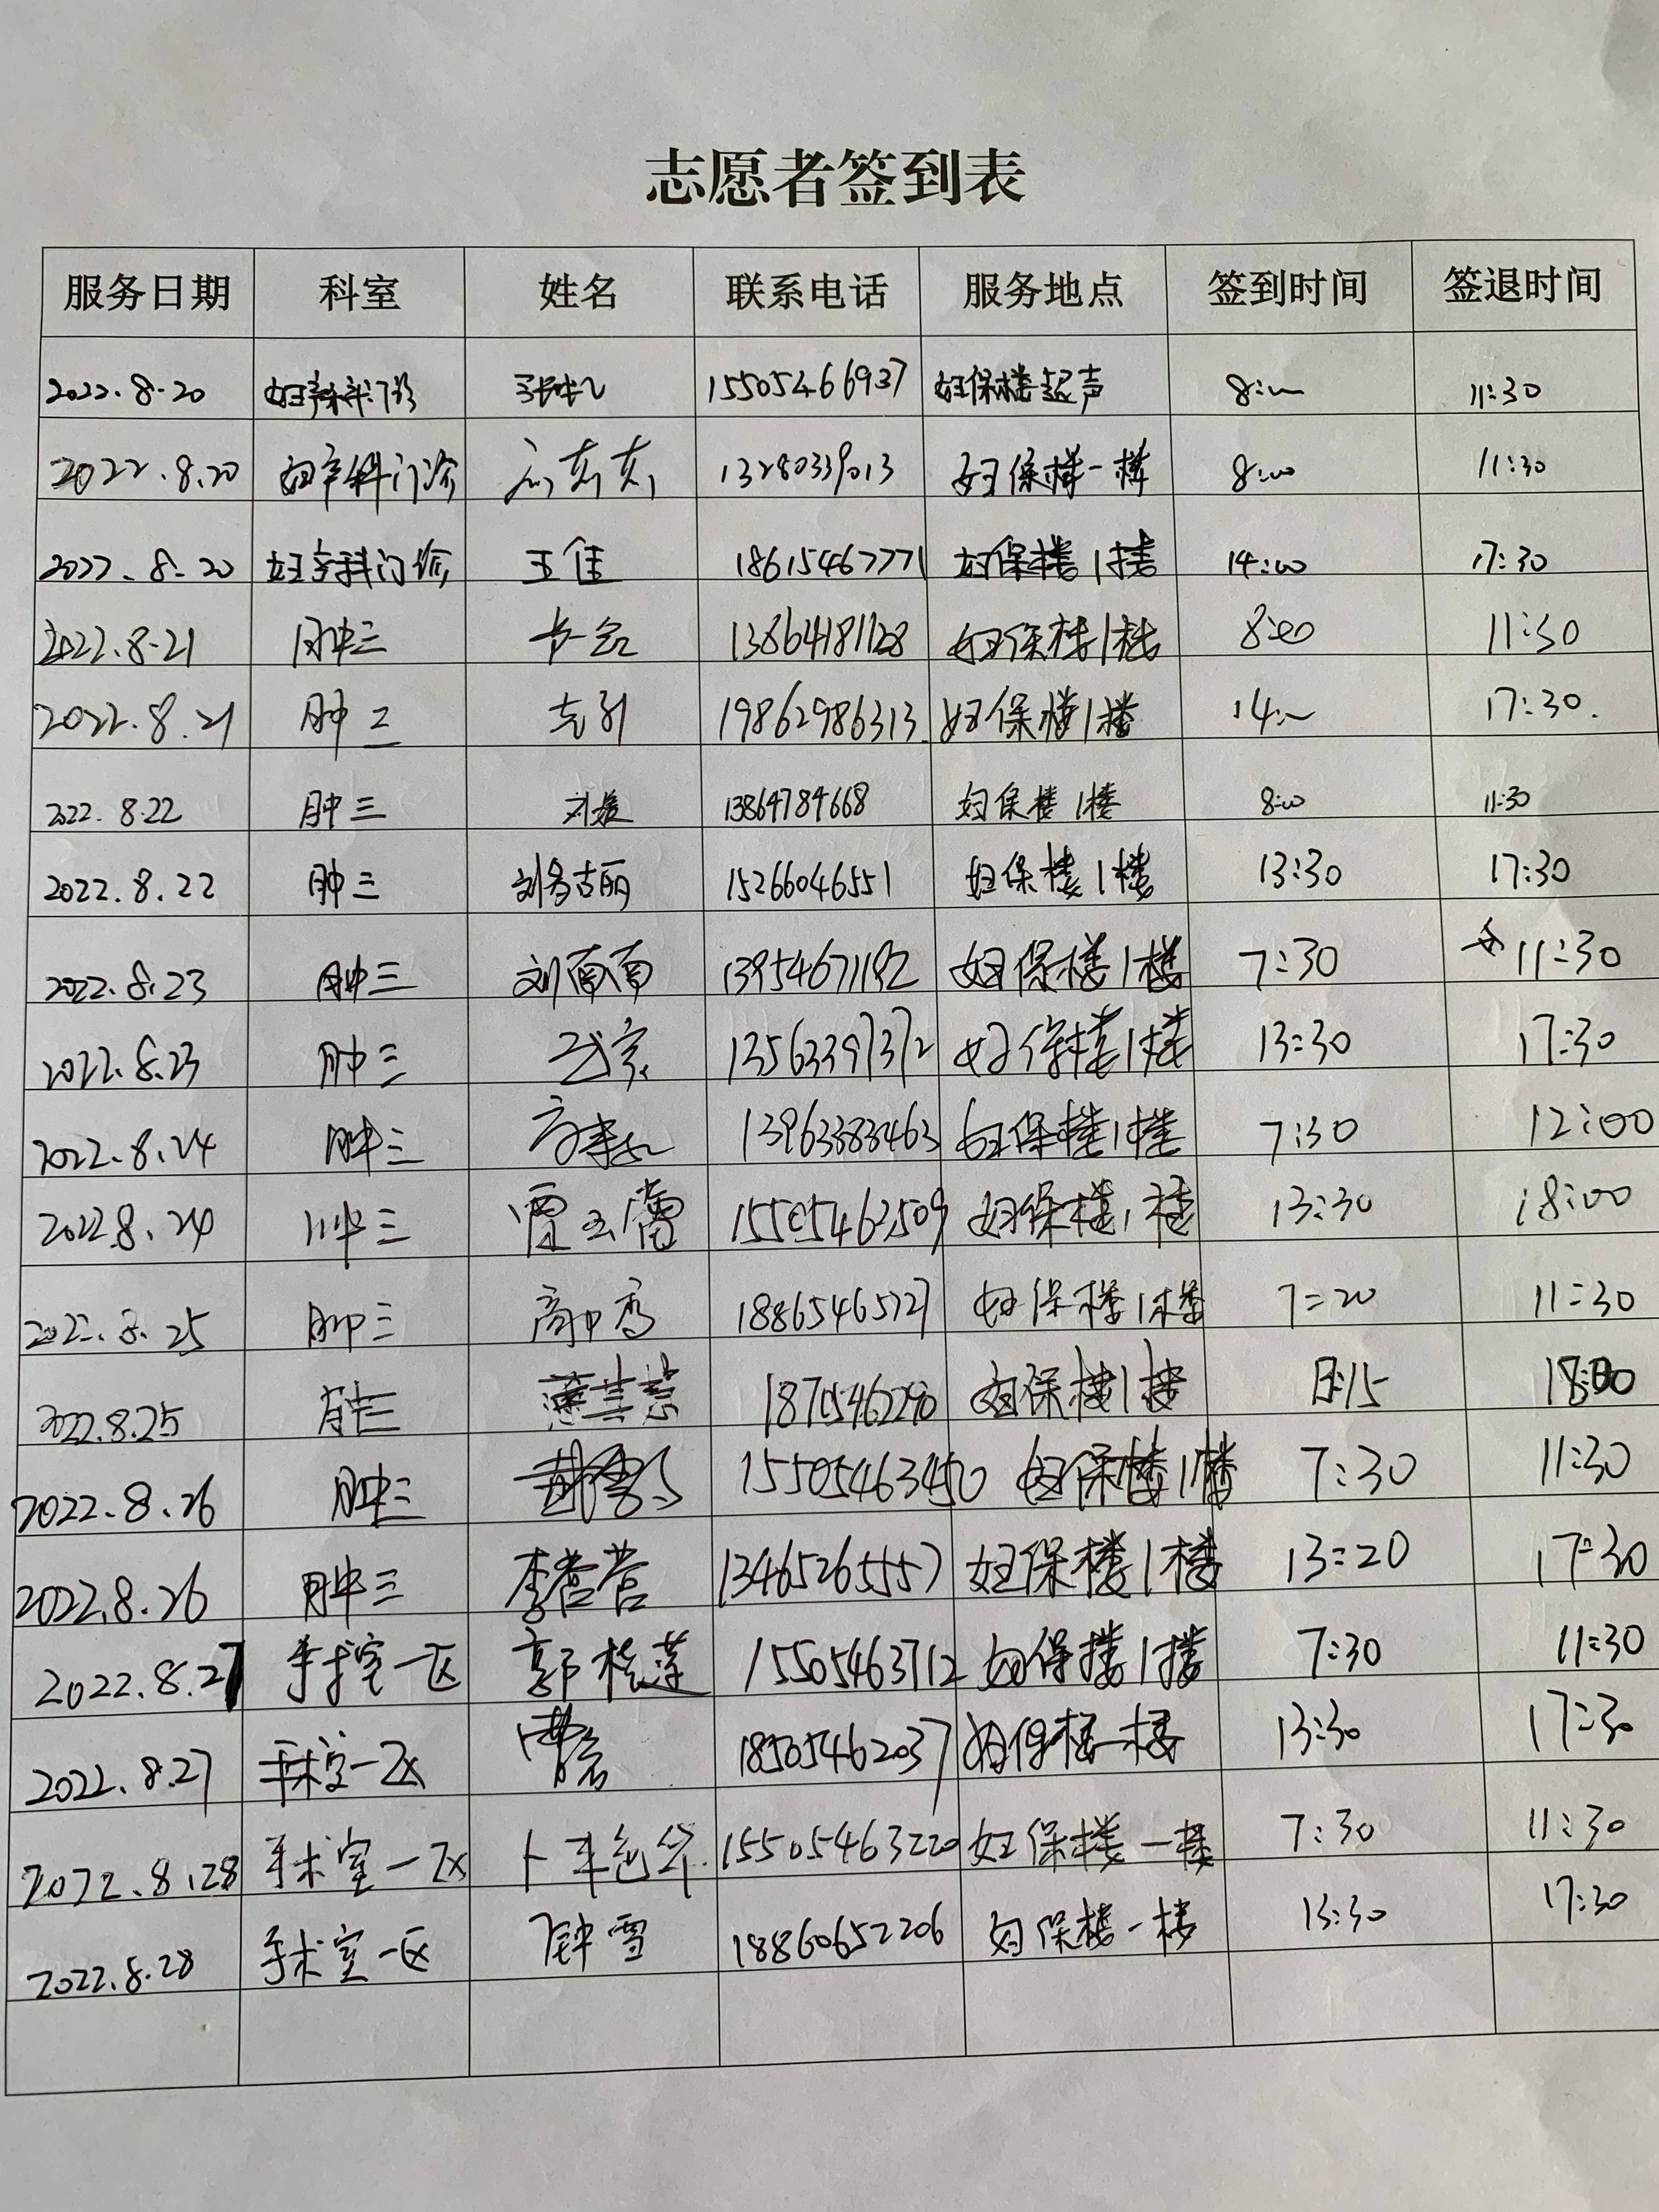 志愿者签到表
服务日期 科室 姓名 联系电话 服务地点 签到时间 签退时间
2022.8.20 妇产科门诊 15505466937 妇保楼超声 8:00 11:30
2022.8.20 妇产科门诊 13280339013 妇保楼一楼 8:00 11:30
2022.8.20 妇产科门诊 王佳 18615467771 妇保楼1楼 14:00 17:30
2022.8.21 肿三 13864181128 妇保楼1楼 8:00 11:30
2022.8.21 肿三 19862986313 妇保楼1楼 14:00 17:30.
2022.8.22 肿三 13864784668 妇保楼1楼 8:00 11:30
2022.8.22 肿三 15266046551 妇保楼1楼 13:30 17:30
2022.8.23 肿三 刘南南 13954671192 妇保楼1楼 7:30 11:30
2022.8.23 肿三 13562397372 妇保楼1楼 13:30 17:30
2022.8.24 肿三 13963383463 妇保楼1楼 7:30 12:00
2022.8.24 肿三 15505462509 妇保楼1楼 13:30 18:00
2022.8.25 肿三 18865465721 妇保楼1楼 7:20 11:30
2022.8.25 肿三 18705462290 妇保楼1楼 18:00
2022.8.26 肿三 15505463450 妇保楼1楼 7:30 11:30
2022.8.26 肿三 李营营 13465265557 妇保楼1楼 13:20 17:30
2022.8.27 手术室一区 郭桂莲 15505463712 妇保楼1楼 7:30 11:30
2022.8.27 手术室一区 18505462037 妇保楼一楼 13:30 17:30
2022.8.28 手术室一区 15505463220 妇保楼一楼 7:30 11:30
2022.8.28 手术室一区 钟雪 18860652206 妇保楼一楼 13:30 17:30